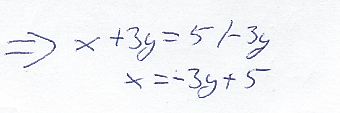 ⇒ x + 3y = 5 /-3y
x = -3y + 5